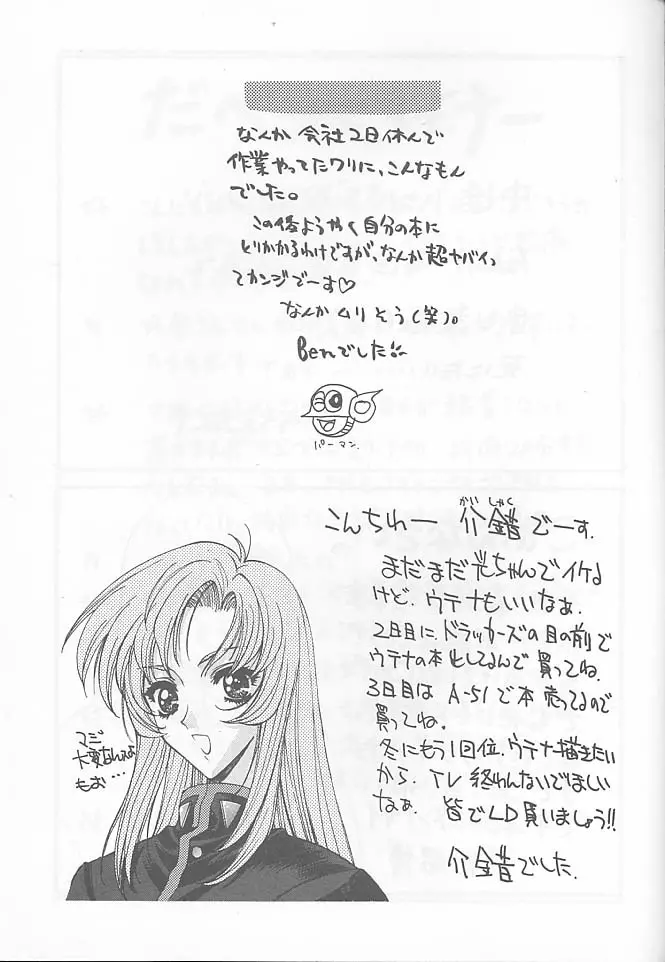 なんか 会社2日休んで
作業やってたワリに、こんなもん
でした。
この後ようやく自分の本に
とりかかるわけですが、なんか超ヤバイっ
てカンジでーす♡
なんかムリそう(笑)。
Benでした!!
パーマン.
こんちわー 介錯でーす.
がい しゃく
まだまだ光ちゃんでイケる
けど、ウテナもいいなぁ.
2日目に、ドラッカーズの目の前で
ウテナの本としてるんで買ってね.
3日目は A-51で本売ってるので
買ってね.
冬にもう1回位、ウテナ描きたい
から、TV終わんないでほしい
なぁ. 皆でLD買いましょう!!
介錯でした.
マジ
大変なんスよ
もお…